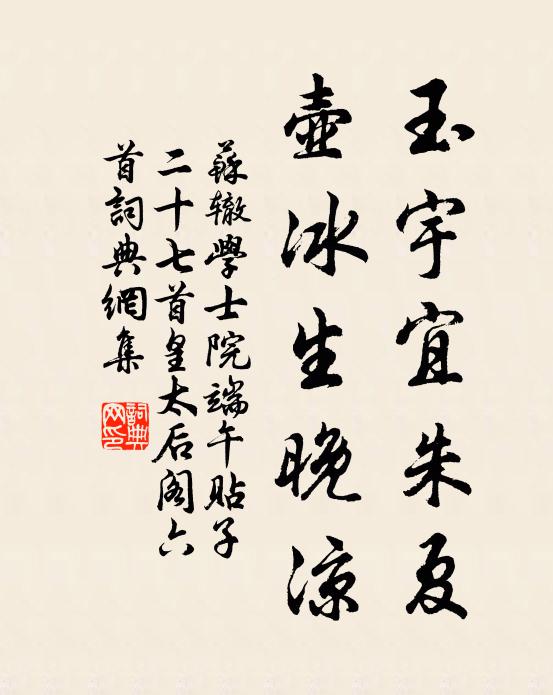 玉宇宜朱夏
壺冰生晚凉
蘇辙學士院端午貼子
二十七首皇太后阁六
首詞典網集
詞典网印